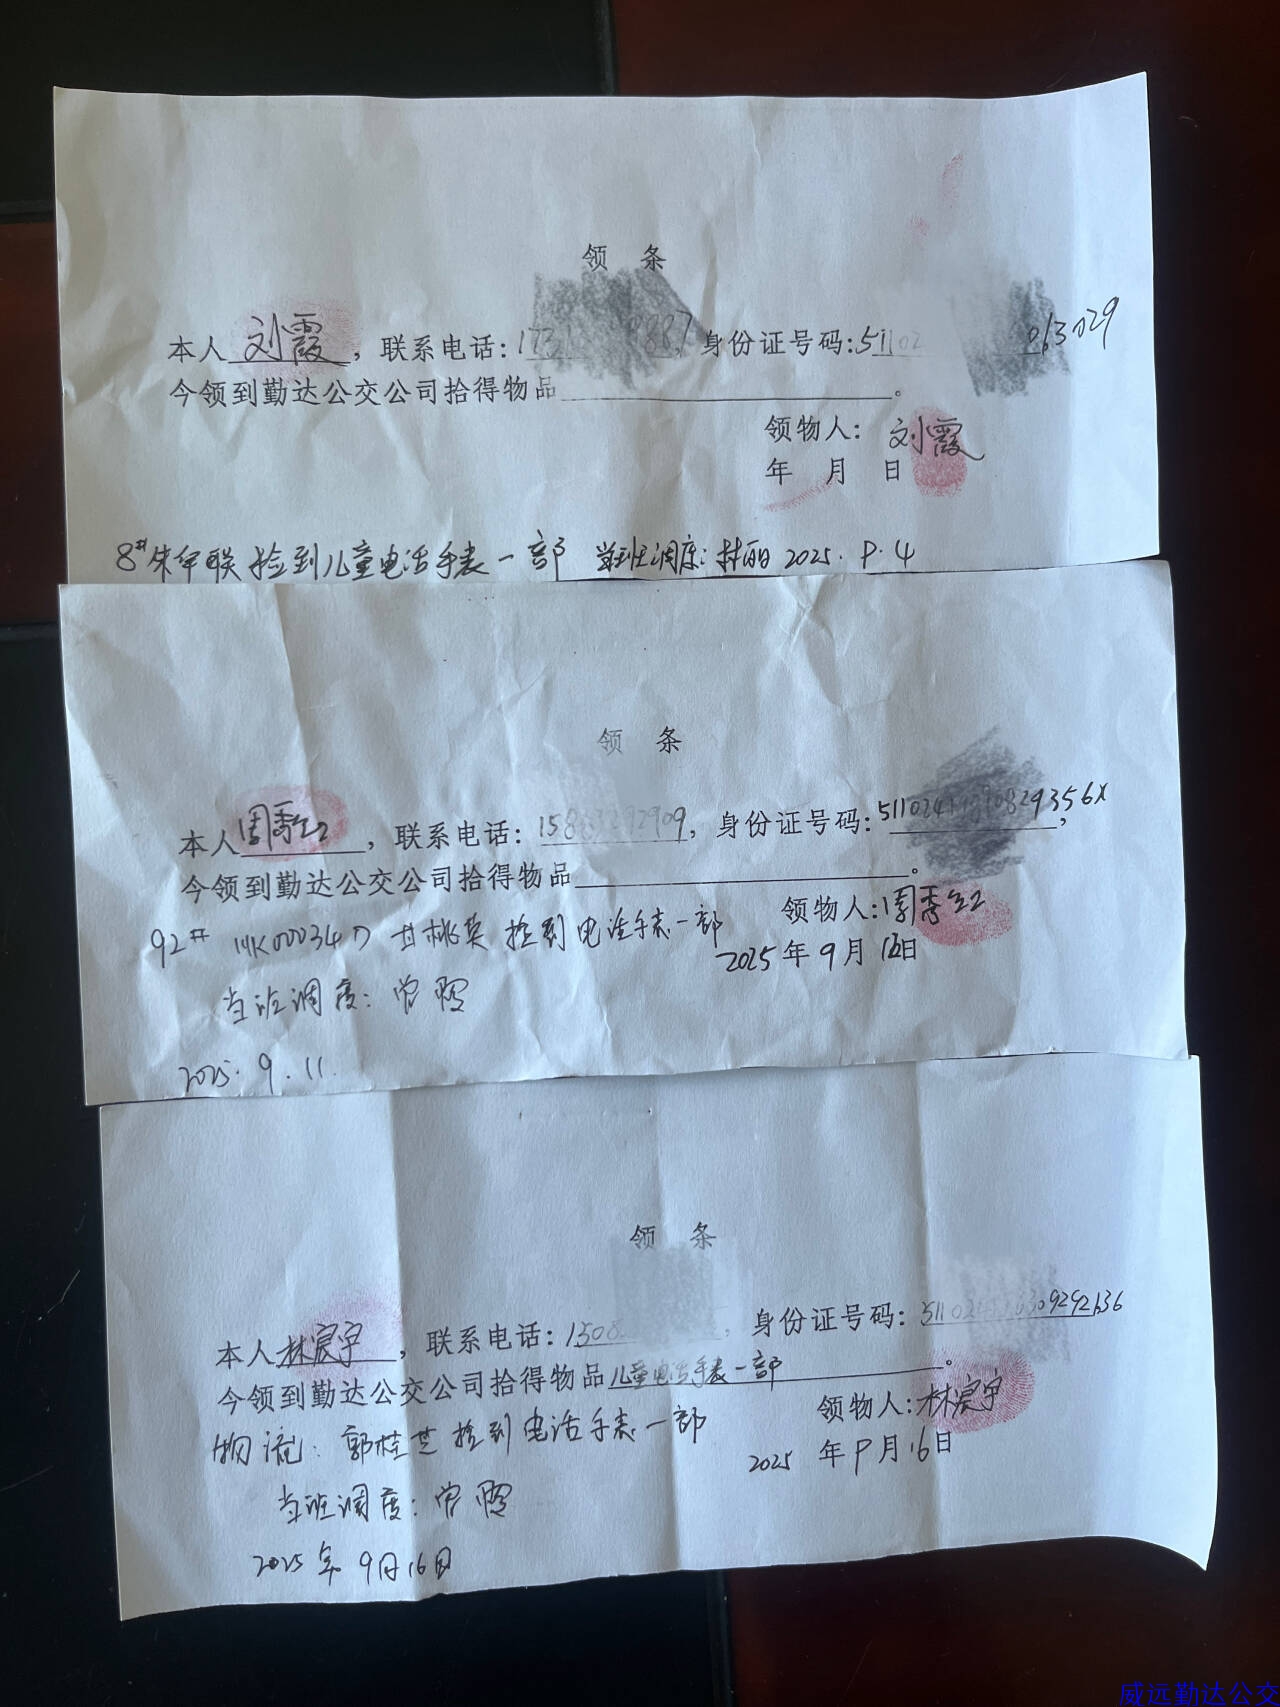 领 条
本人刘霞，联系电话:173 8887，身份证号码:51102 063029
今领到勤达公交公司拾得物品。
领物人: 刘霞
年 月 日
8# 捡到儿童电话手表一部 当班调度: 林丽 2025.9.4
领 条
本人周秀红，联系电话: 2909，身份证号码: 356X，
今领到勤达公交公司拾得物品。
领物人:周秀红
92# 甘桃英捡到电话手表一部
2025年9月12日
当班调度:
2025.9.11.
领 条
本人林宸宇，联系电话:1508，身份证号码: 
今领到勤达公交公司拾得物品儿童电话手表一部。
领物人:林宸宇
物流: 郭桂芝捡到电话手表一部
2025 年9月16日
当班调度:
2025年9月16日
威远勤达公交